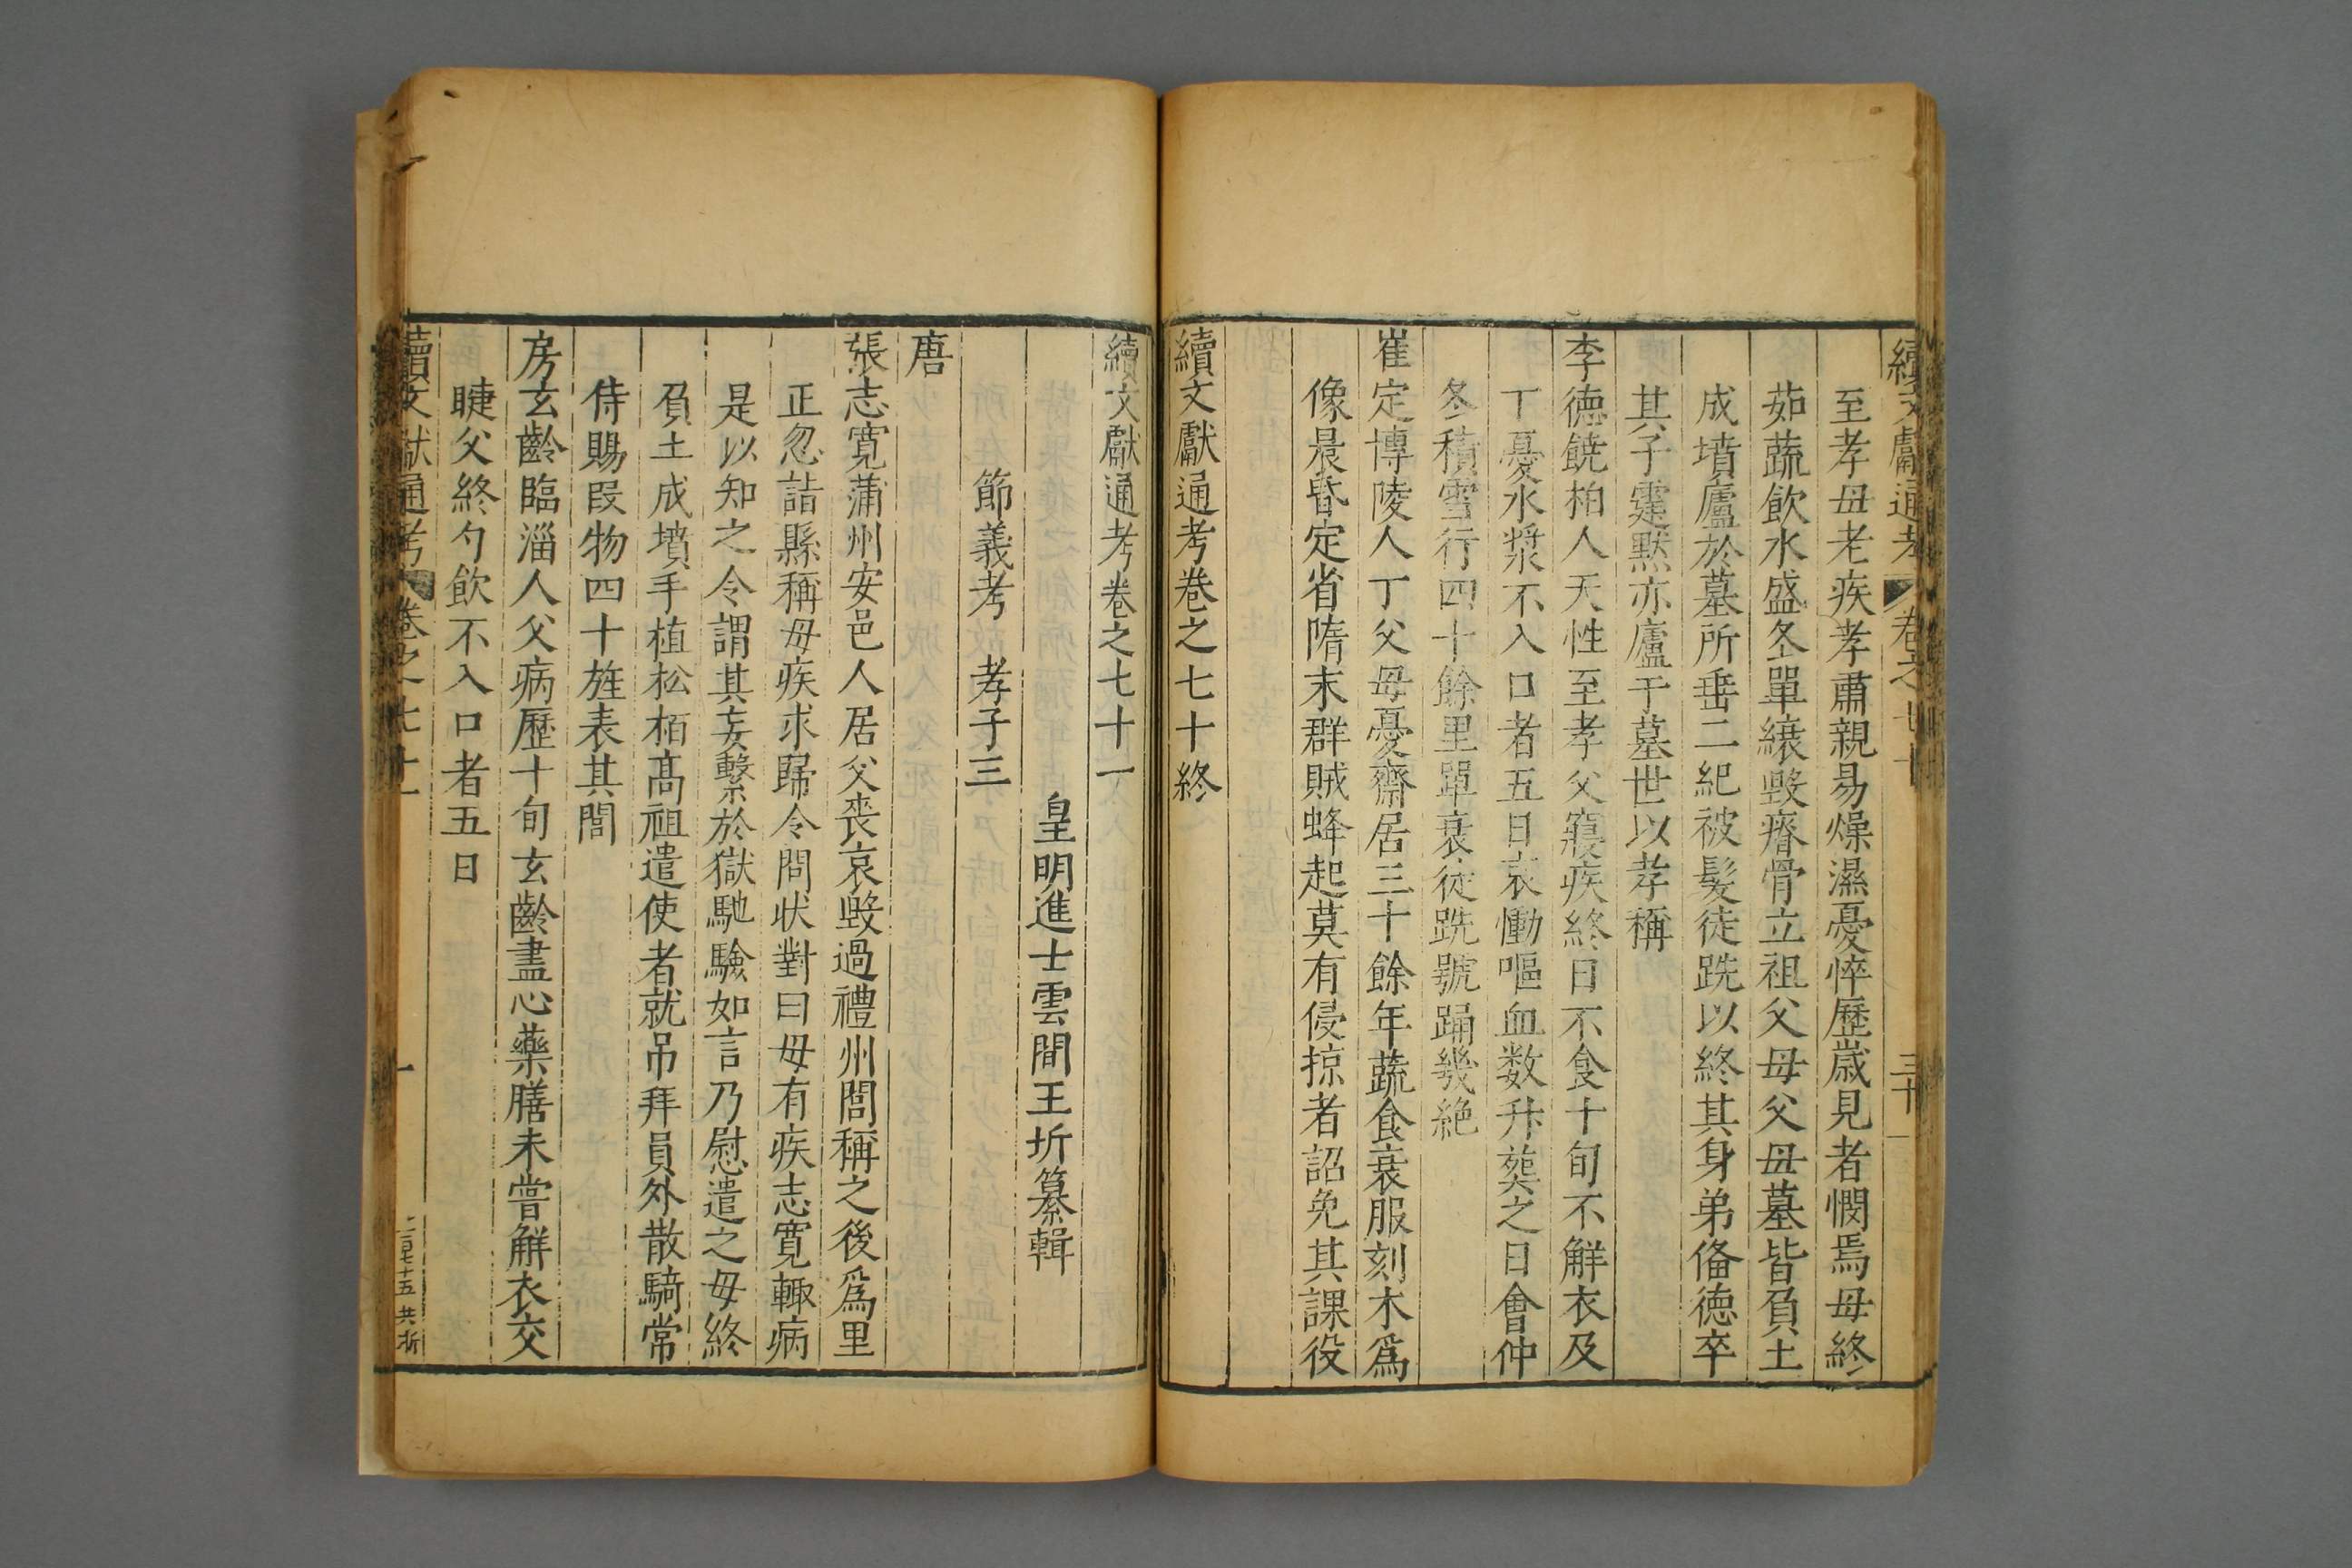 續文獻通考 卷之七十 三十一
至孝母老疾孝肅親易燥濕憂悴歷歲見者憫焉母終
茹蔬飲水盛冬單縗毀瘠骨立祖父母父母墓皆負土
成墳廬於墓所垂二紀被髮徒跣以終其身弟俻德卒
其子霆黙亦廬于墓世以孝稱
李德饒柏人天性至孝父寢疾終日不食十旬不觧衣及
丁憂水漿不入口者五日哀慟嘔血数升葬之日會仲
冬積雪行四十餘里單衰徒跣號踊幾絶
崔定博陵人丁父母憂齋居三十餘年蔬食衰服刻木爲
像晨昏定省隋末群賊蜂起莫有侵掠者詔免其課役
續文獻通考卷之七十終
續文獻通考卷之七十一
皇明進士雲間王圻纂輯
節義考 孝子三
唐
張志寬蒲州安邑人居父喪哀毀過禮州閭稱之後爲里
正忽詣縣稱母疾求歸令問狀對曰母有疾志寬輙病
是以知之令謂其妄繫於獄馳驗如言乃慰遣之母終
負土成墳手植松栢髙祖遣使者就吊拜員外散騎常
侍賜叚物四十旌表其閭
房玄齡臨淄人父病歷十旬玄齡盡心藥膳未嘗觧衣交
睫父終勺飲不入口者五日
續文獻通考 卷之七十一 一 二百七十五 共